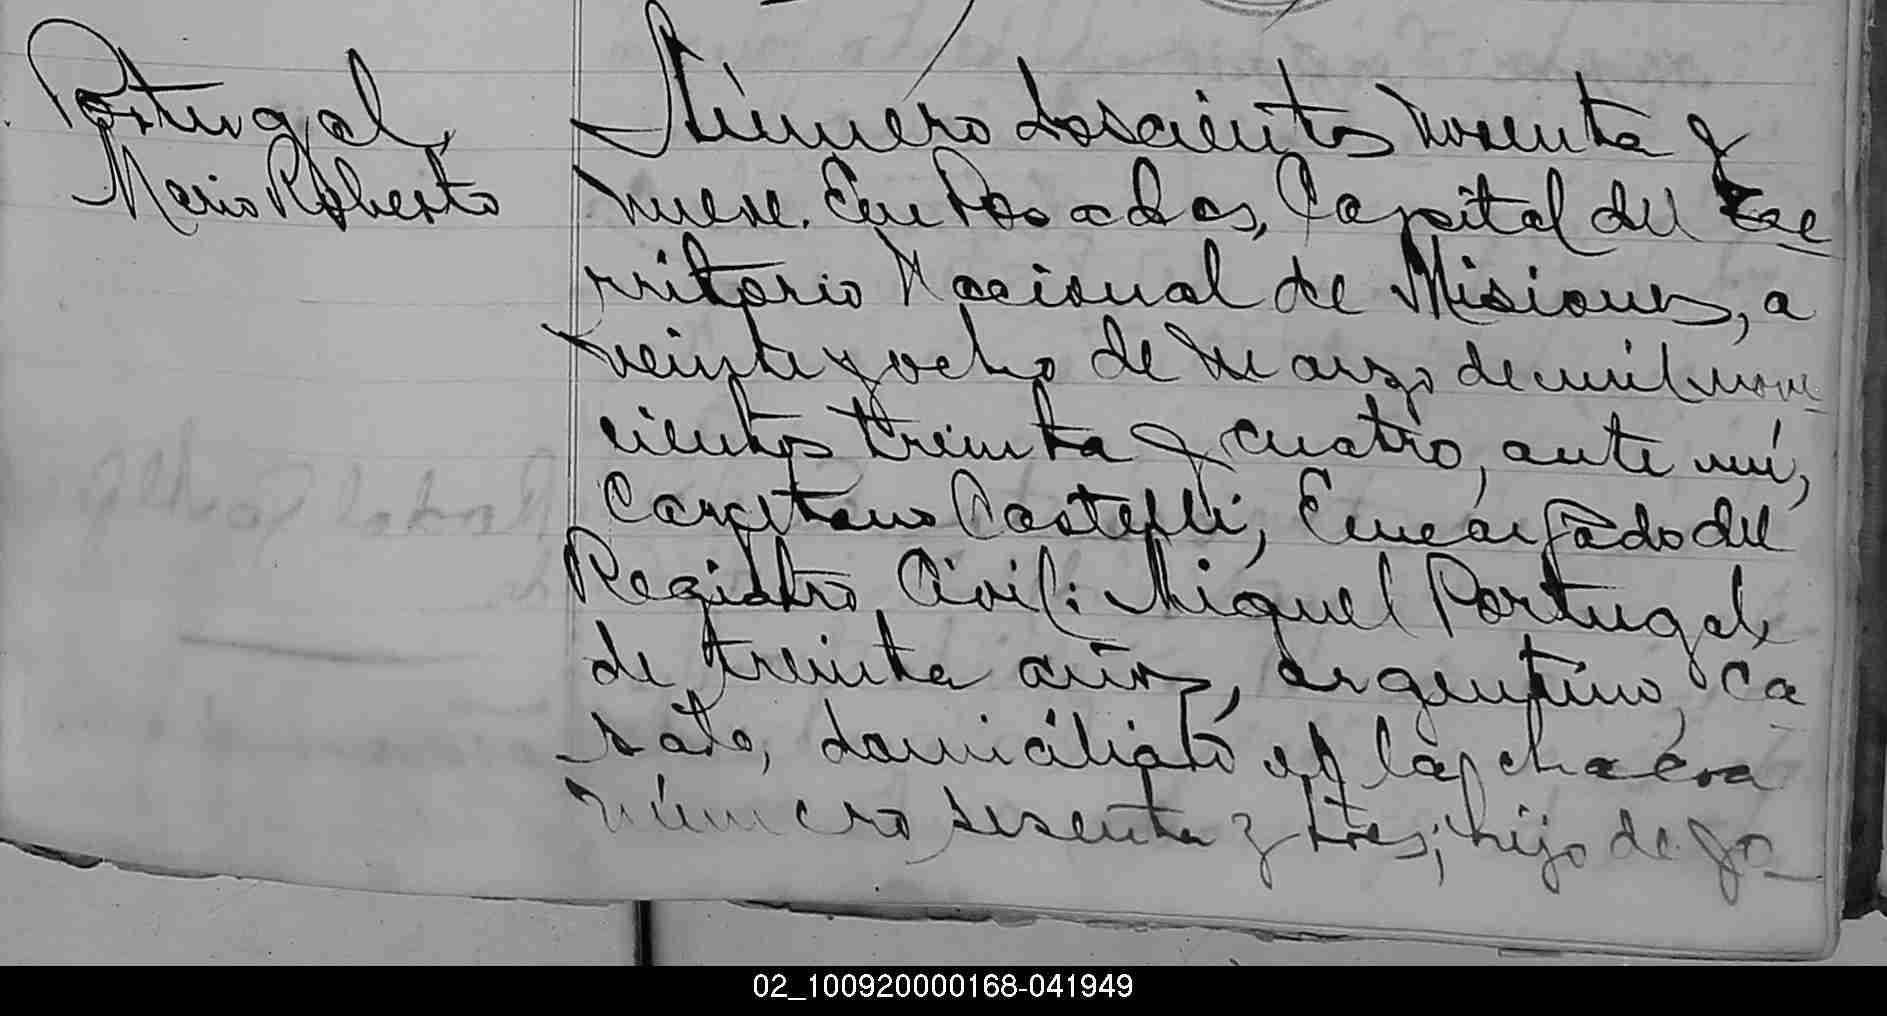 Portugal,
Mario Roberto
Número doscientos noventa y
nueve. En Posadas, Capital del Te
rritorio Nacional de Misiones, a
veinte y ocho de Marzo de mil nove
cientos treinta y cuatro, ante mí,
Cayetano Castelli, Encargado del
Registro Civil: Miguel Portugal,
de treinta años, argentino, ca
sado, domiciliado en la chacra
número sesenta y tres; hijo de Jo
02_100920000168-041949